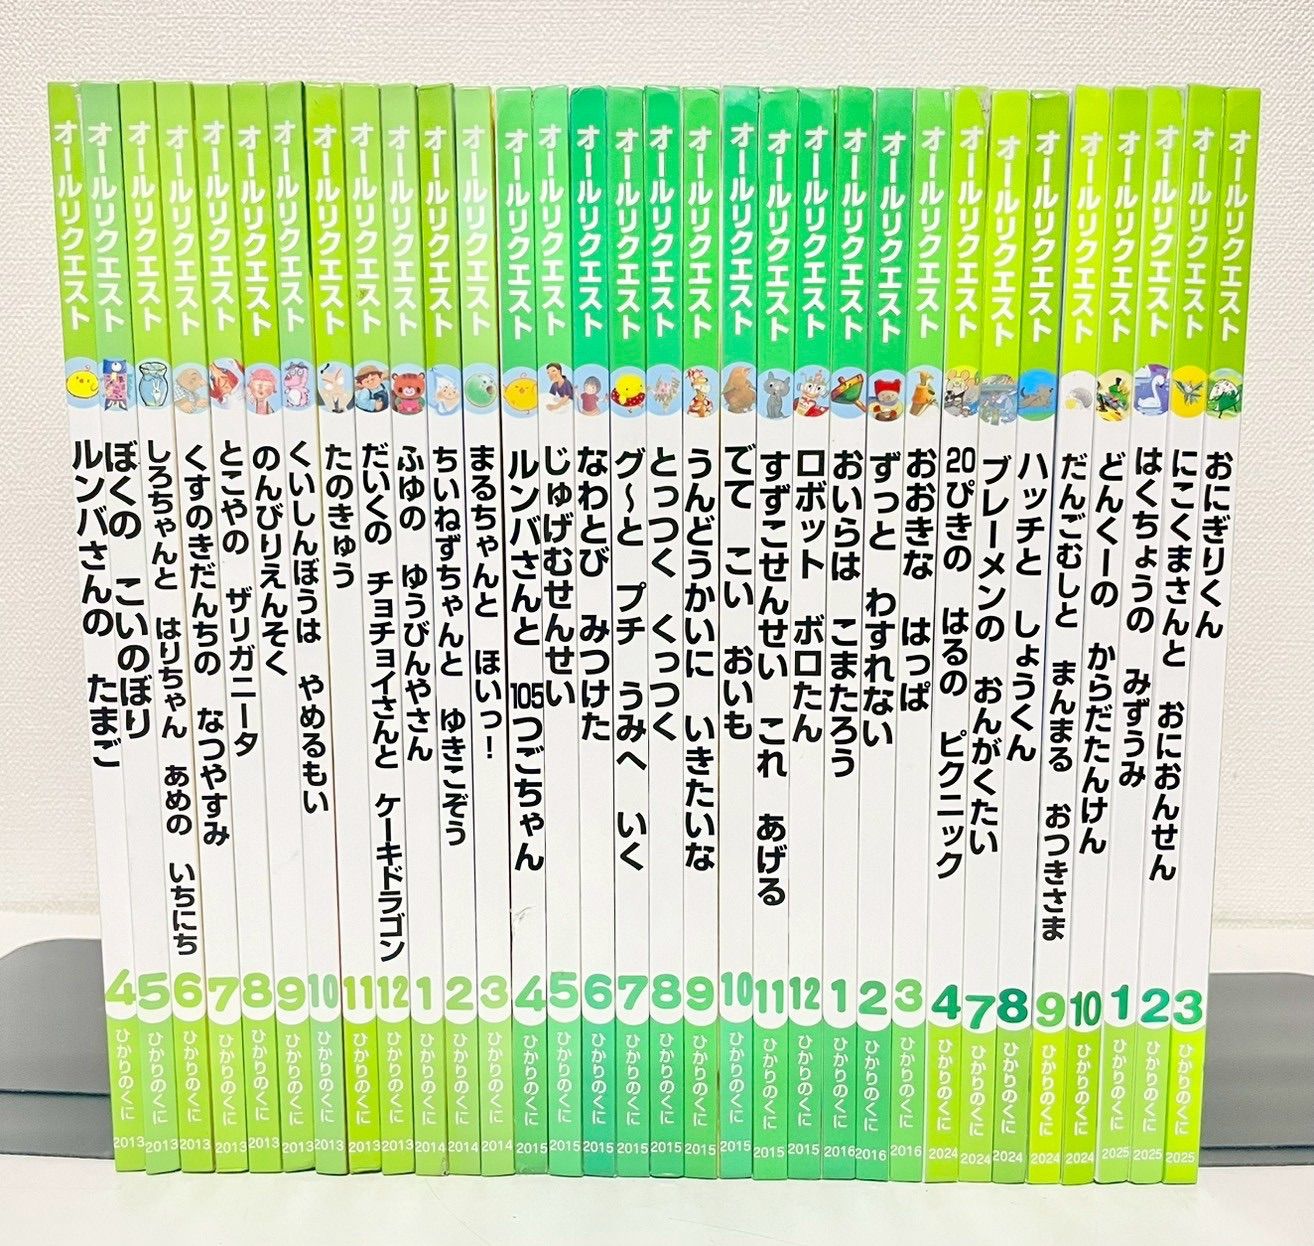 オールリクエスト ルンバさんの たまご 4 ひかりのくに 2013
オールリクエスト ぼくの こいのぼり 5 ひかりのくに 2013
オールリクエスト しろちゃんと はりちゃん あめの いちにち 6 ひかりのくに 2013
オールリクエスト くすのきだんちの なつやすみ 7 ひかりのくに 2013
オールリクエスト とこやの ザリガニータ 8 ひかりのくに 2013
オールリクエスト のんびりえんそく 9 ひかりのくに 2013
オールリクエスト くいしんぼうは やめるもい 10 ひかりのくに 2013
オールリクエスト たのきゅう 11 ひかりのくに 2013
オールリクエスト だいくの チョチョイさんと ケーキドラゴン 12 ひかりのくに 2013
オールリクエスト ふゆの ゆうびんやさん 1 ひかりのくに 2014
オールリクエスト ちいねずちゃんと ゆきこぞう 2 ひかりのくに 2014
オールリクエスト まるちゃんと ほいっ! 3 ひかりのくに 2014
オールリクエスト ルンバさんと 105つごちゃん 4 ひかりのくに 2015
オールリクエスト じゅげむせんせい 5 ひかりのくに 2015
オールリクエスト なわとび みつけた 6 ひかりのくに 2015
オールリクエスト グ〜と プチ うみへ いく 7 ひかりのくに 2015
オールリクエスト とっつく くっつく 8 ひかりのくに 2015
オールリクエスト うんどうかいに いきたいな 9 ひかりのくに 2015
オールリクエスト でて こい おいも 10 ひかりのくに 2015
オールリクエスト すずこせんせい これ あげる 11 ひかりのくに 2015
オールリクエスト ロボット ボロたん 12 ひかりのくに 2015
オールリクエスト おいらは こまたろう 1 ひかりのくに 2016
オールリクエスト ずっと わすれない 2 ひかりのくに 2016
オールリクエスト おおきな はっぱ 3 ひかりのくに 2016
オールリクエスト 20ぴきの はるの ピクニック 4 ひかりのくに 2024
オールリクエスト ブレーメンの おんがくたい 7 ひかりのくに 2024
オールリクエスト ハッチと しょうくん 8 ひかりのくに 2024
オールリクエスト だんごむしと まんまる おつきさま 9 ひかりのくに 2024
オールリクエスト どんくーの からだたんけん 10 ひかりのくに 2024
オールリクエスト はくちょうの みずうみ 1 ひかりのくに 2025
オールリクエスト にこくまさんと おにおんせん 2 ひかりのくに 2025
オールリクエスト おにぎりくん 3 ひかりのくに 2025